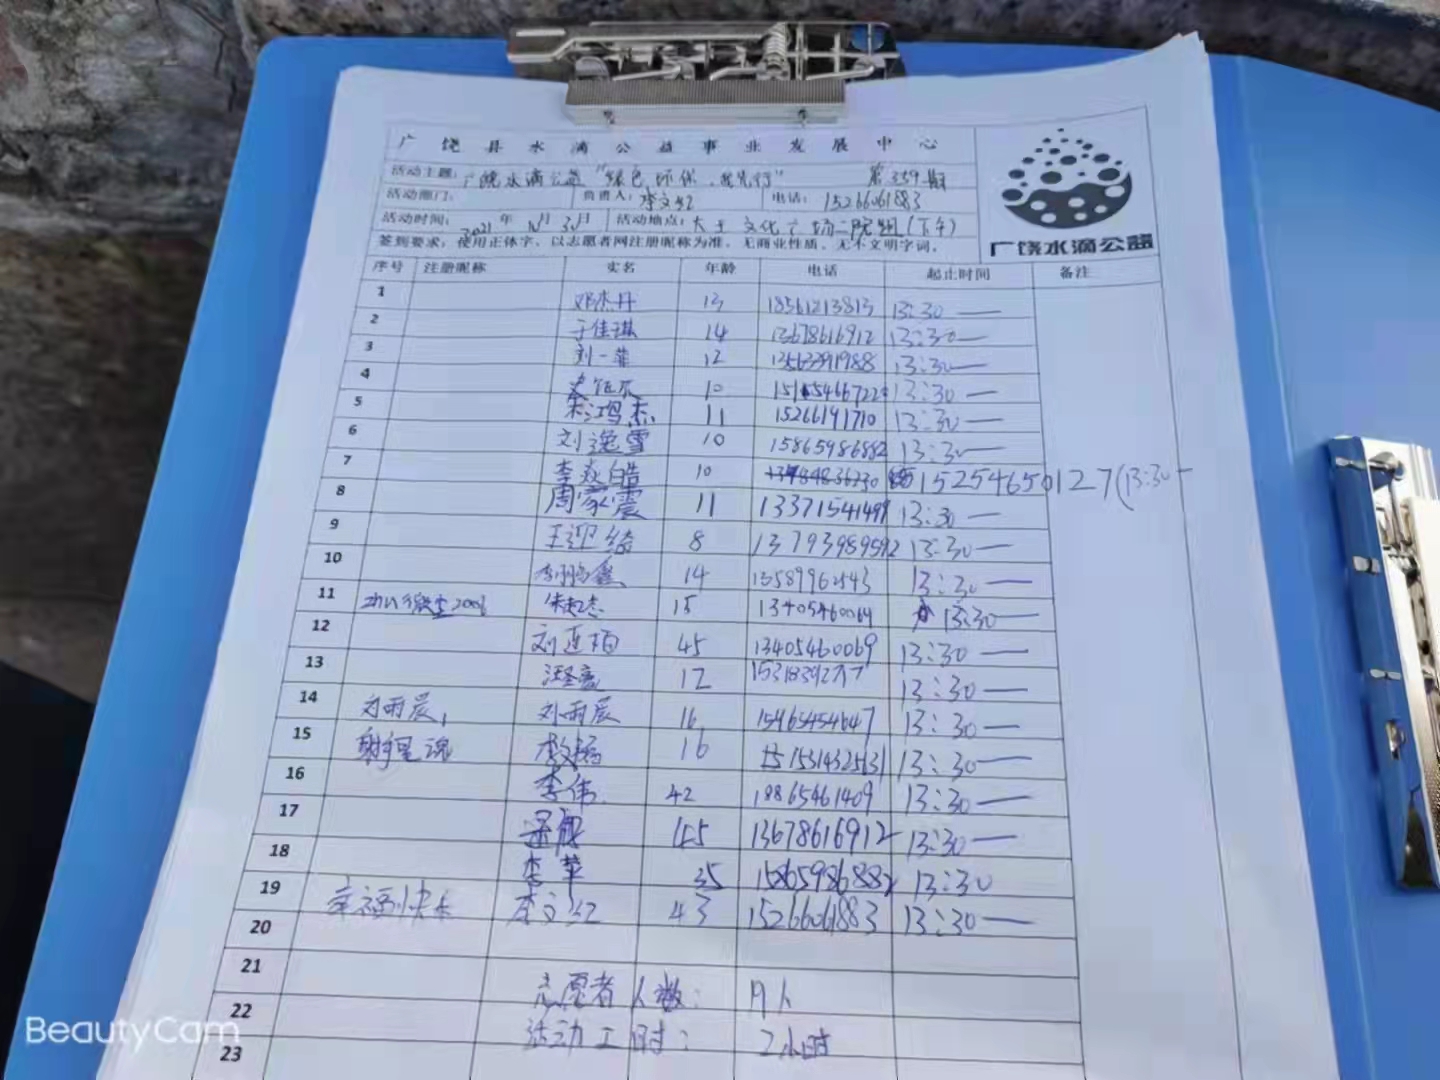 广饶县水滴公益事业发展中心
活动主题：广饶水滴公益"绿色环保，我先行" 第359期
活动部门： 负责人：李文红 电话：15266061883
活动时间：2021年 月 日 活动地点：大王文化广场二院组(下午)
签到要求：使用正体字，以志愿者网注册昵称为准，无商业性质，无不文明字词。
广饶水滴公益
序号 注册昵称 实名 年龄 电话 起止时间 备注
1 邓杰丹 13 18561213813 13:30—
2 于佳琪 14 13678616912 13:30—
3 刘一菲 12 13563391988 13:30—
4 10 13:30—
5 朱鸿杰 11 15266191710 13:30—
6 刘逸雪 10 15865986882 13:30—
7 李焱皓 10 15254650127(13:30—
8 周家震 11 13371541499 13:30—
9 王迎绮 8 13793989592 13:30—
10 李鹏鑫 14 13:30—
11 朱超杰 15 13405460069 13:30—
12 刘连柏 45 13405460069 13:30—
13 12 13:30—
14 刘雨辰1 刘雨辰 16 15465454647 13:30—
15 16 15314325131 13:30—
16 李伟 42 18865461409 13:30—
17 45 13678616912 13:30—
18 李苹 35 15865986882 13:30
19 幸福快乐 李文红 43 15266061883 13:30—
20
21 志愿者人数： 19人
22 活动工时： 2小时
23
BeautyCam